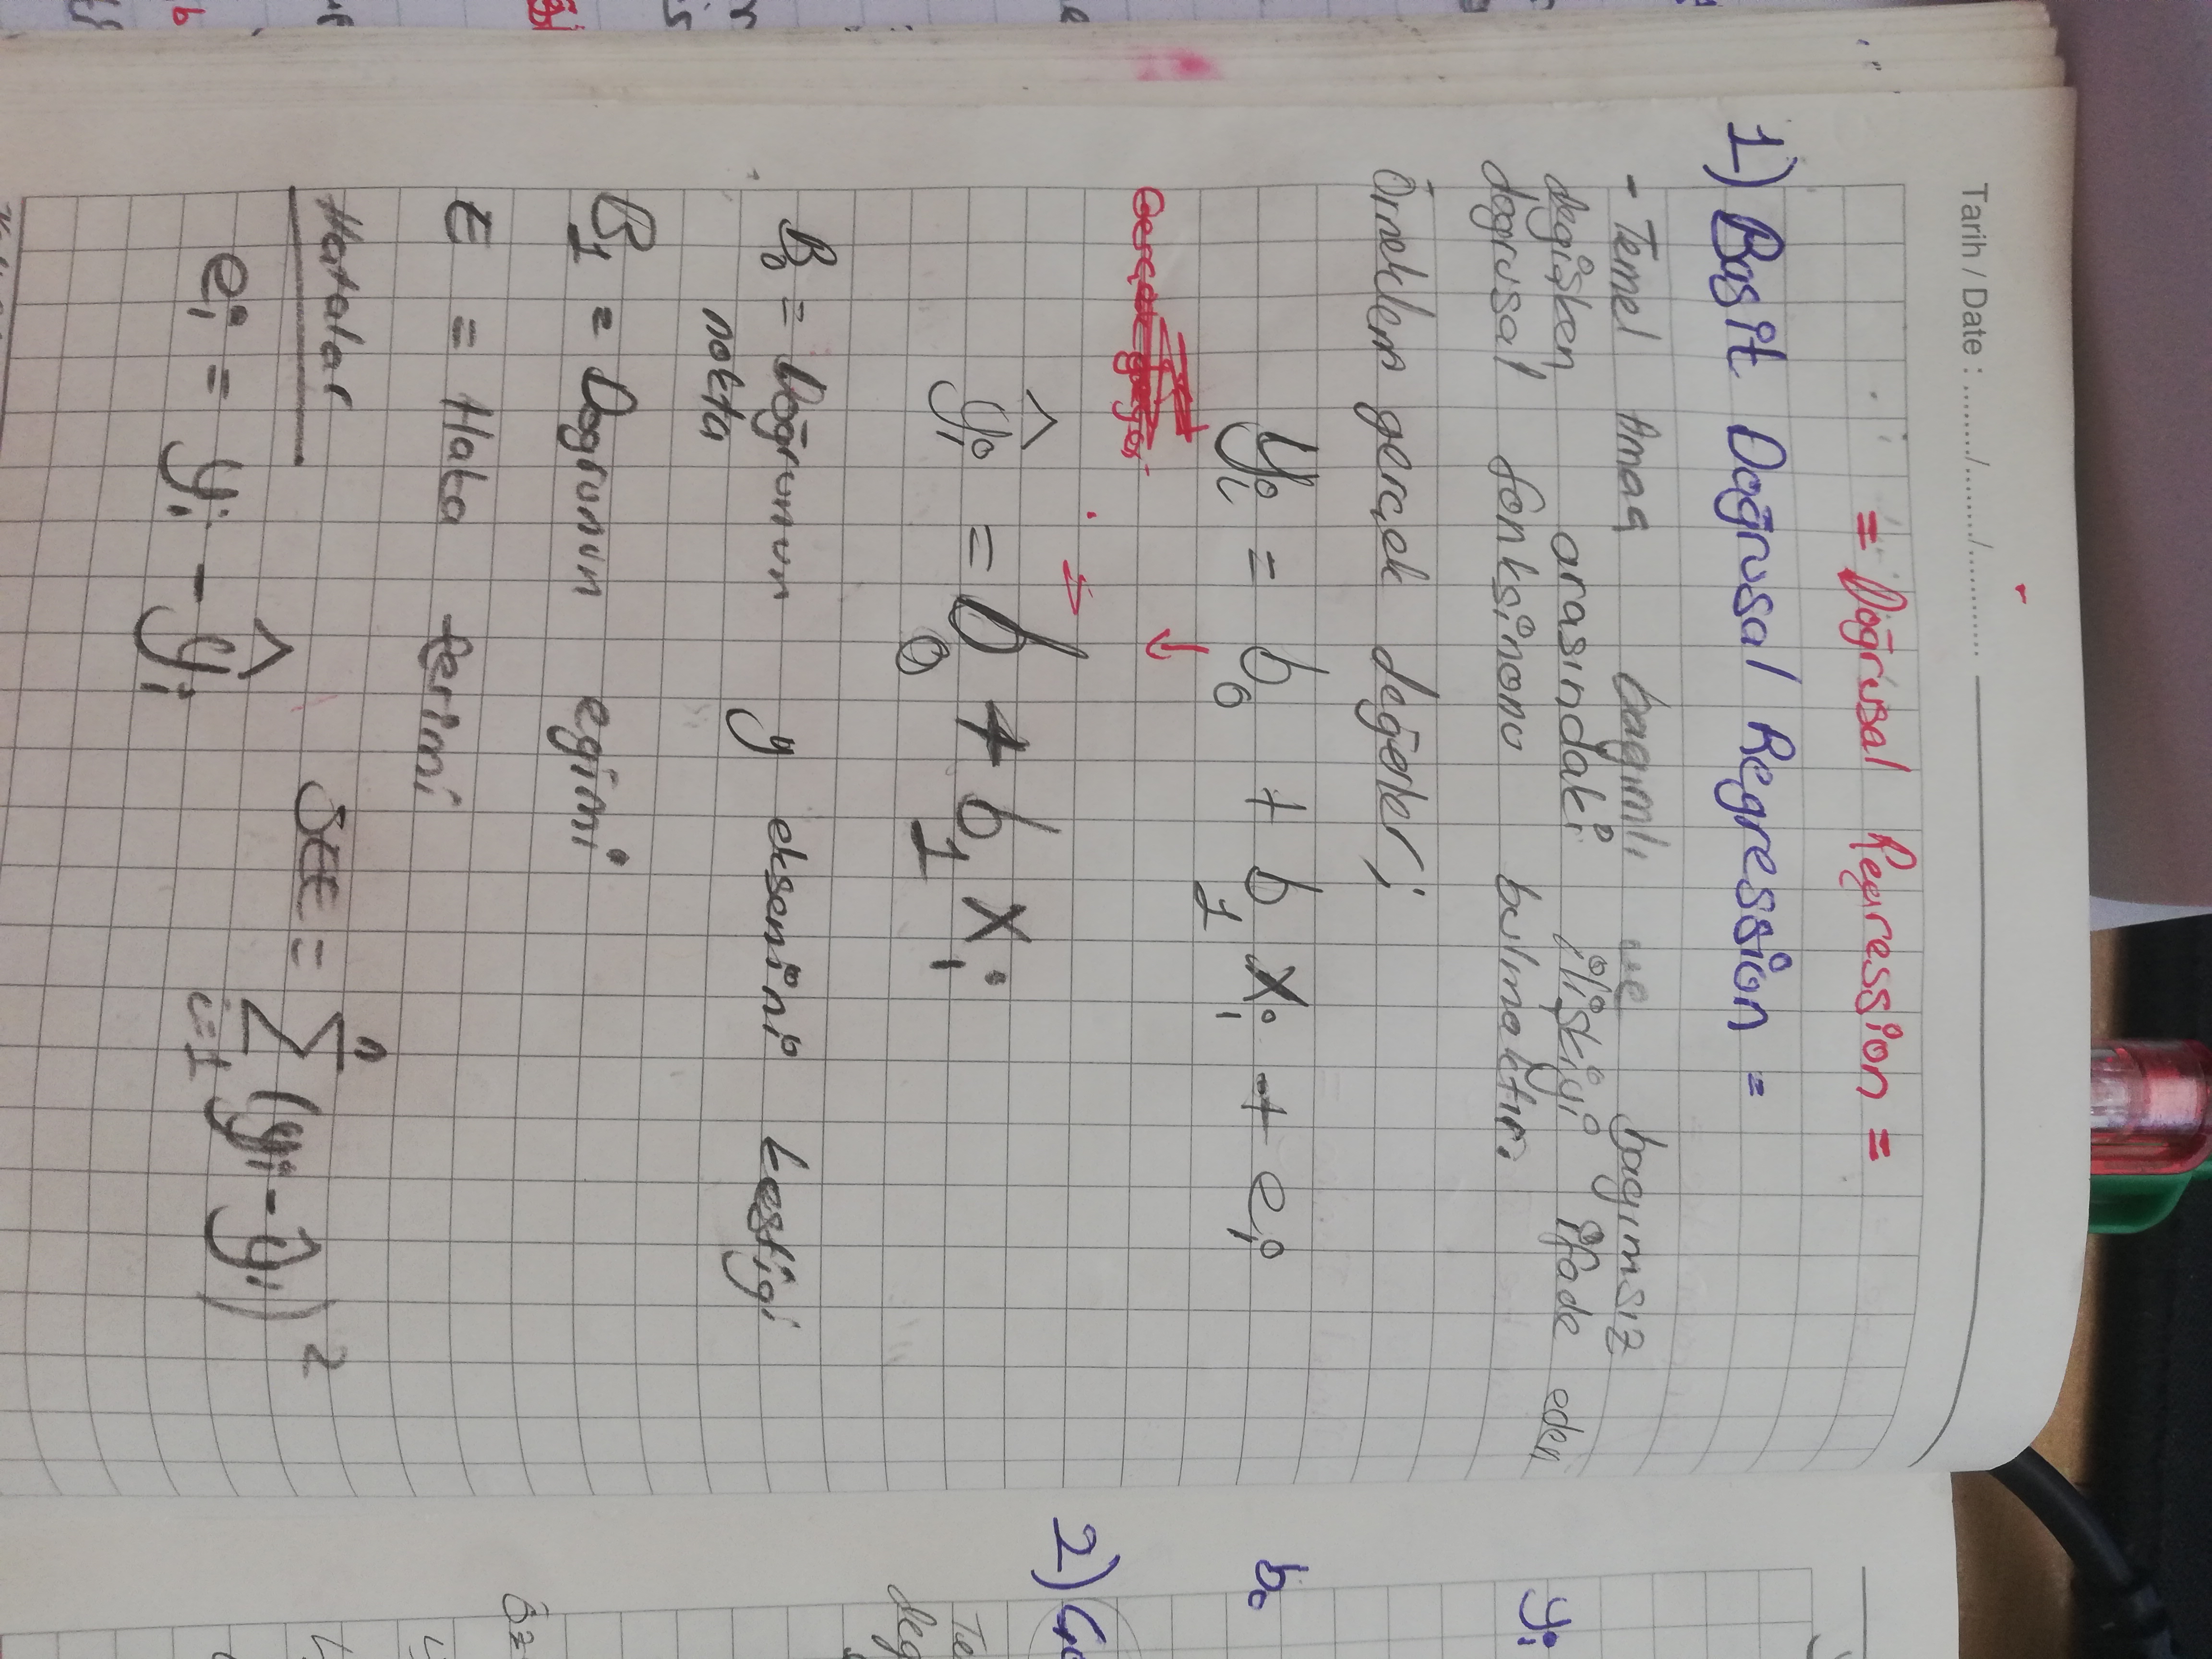 Tarih / Date : ......../......../............
= Doğrusal Regression =
1) Basit Doğrusal Regression =
- Temel Amaç bagımlı ve bagımsız
degişken arasındaki ilişkiyi ifade eden
dogrusal fonksinonu bulmaktır.
Örneklem gerçek değerler;
yi = b0 + b1 xi + ei
↓
=
ŷi = b0 + b1 xi
B0 = Doğrunun y eksenini kestigi
nokta
B1 = Dogrunun egimi
E = Hata terimi
Hatalar
SEE = n∑i=1 (yi - ŷi)²
ei = yi - ŷi
yi
b0
2)